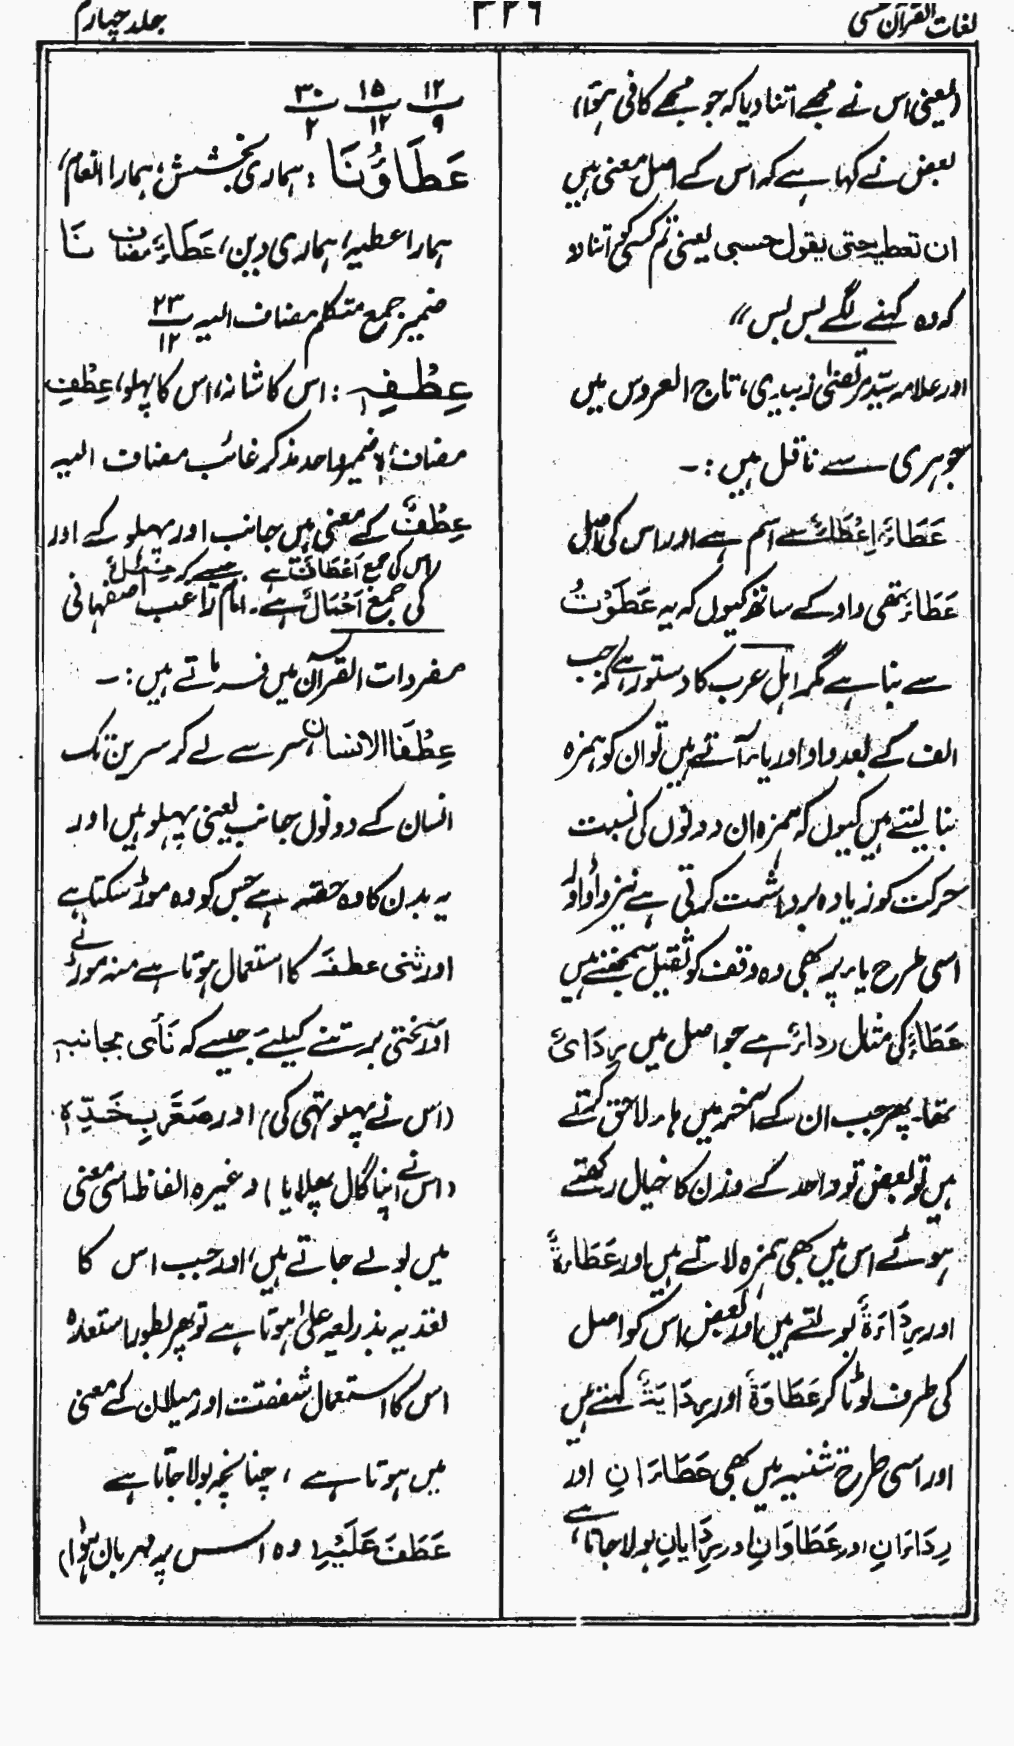 لغات القرآن حسی
۳۲۶
جلد چہارم
(یعنی اس نے مجھے اتنا دیا کہ جو مجھے کافی ہوا)
بعض نے کہا ہے کہ اس کے اصل معنی ہیں
ان تعطیہ حتی یقول حسبی یعنی تم کسی کو اتنا دو
کہ وہ کہنے لگے بس بس ״
اور علامہ سید مرتضیٰ زبیدی، تاج العروس میں
جوہری سے ناقل ہیں :۔
عَطَاءٌ، اِعْطَاءٌ سے اسم ہے اور اس کی اصل
عَطَاءٌ تھی واو کے ساتھ کیوں کہ یہ عَطَوْتُ
سے بنا ہے مگر اہلِ عرب کا دستور ہے کہ جب
الف کے بعد واو اور یاء آتے ہیں تو ان کو ہمزہ
بنا لیتے ہیں کیوں کہ ہمزہ ان دونوں کی نسبت
حرکت کو زیادہ برداشت کرتی ہے نیز واؤ اور
اسی طرح یاء پر بھی وہ وقف کو ثقیل سمجھتے ہیں
عَطَاءٌ کی مثال رداءٌ ہے جو اصل میں رِدَایٌ
تھا۔ پھر جب ان کے آخر میں ہاء لاحق کرتے
ہیں تو بعض تو واحد کے وزن کا خیال رکھتے
ہوئے اس میں بھی ہمزہ لاتے ہیں اور عَطَاءَةٌ
اور رِدَاءَةٌ بولتے ہیں اور بعض اس کو اصل
کی طرف لوٹا کر عَطَاوَةٌ اور رِدَایَةٌ کہتے ہیں
اور اسی طرح تثنیہ میں بھی عَطَاءَانِ اور
رِدَاءَانِ اور عَطَاوَانِ اور رِدَایَانِ بولا جاتا ہے،
۱۲/۹ ۱۵/۱۲ ۳۰/۲
عَطَاؤُنَا : ہماری بخشش؛ ہمارا انعام،
ہمارا عطیہ، ہماری دین، عَطَاءُ مضاف نَا
ضمیر جمع متکلم مضاف الیہ ۲۳/۱۲
عِطْفِہٖ : اس کا شانہ، اس کا پہلو، عِطْفِ
مضاف، ہ ضمیر واحد مذکر غائب مضاف الیہ
عِطْفٌ کے معنی ہیں جانب اور پہلو کے اور
اس کی جمع اَعْطَافٌ ہے جیسے کہ حِمْلٌ
کی جمع اَحْمَالٌ ہے۔ امام راغب اصفہانی
مفردات القرآن میں فرماتے ہیں :۔
عِطْفَا الانسان، سر سے لے کر سرین تک
انسان کے دونوں جانب یعنی پہلو ہیں اور
یہ بدن کا وہ حصہ ہے جس کو وہ موڑ سکتا ہے
اور ثنی عطفہ کا استعمال ہوتا ہے منہ موڑنے
اور سختی برتنے کیلئے جیسے کہ نَأٰی بجانبہٖ
(اس نے پہلو تہی کی) اور صَعَّرَ بِخَدِّہٖ
(اس نے اپنا گال پھلایا) وغیرہ الفاظ اسی معنی
میں بولے جاتے ہیں؛ اور جب اس کا
تعدیہ بذریعہ علیٰ ہوتا ہے تو پھر بطور استعارہ
اس کا استعمال شفقت اور میلان کے معنی
میں ہوتا ہے، چنانچہ بولا جاتا ہے
عَطَفَ عَلَیْہِ (وہ اس پر مہربان ہوا)